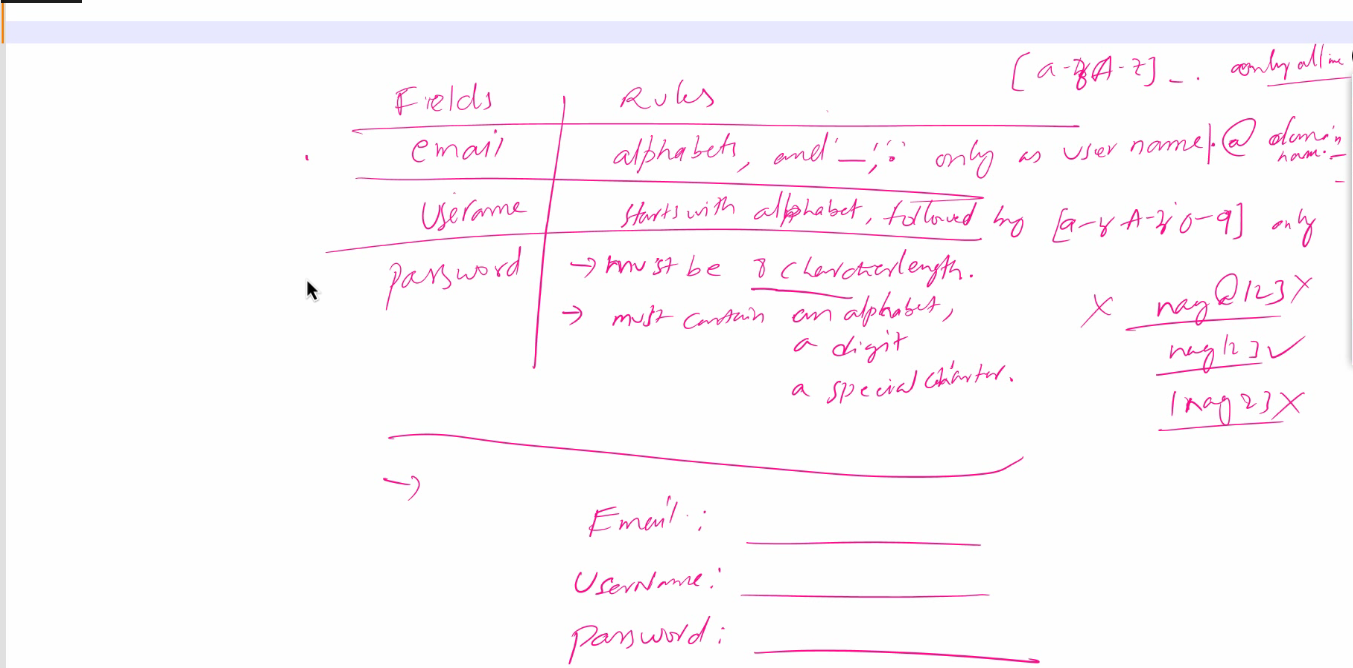 [a-zA-Z] _ . only all
Fields Rules
email alphabets, and '_', '.' only as user name @ domain
name.
Userame starts with alphabet, followed by [a-zA-Z0-9] only
password → must be 8 character length.
→ must contain an alphabet,
a digit
a special charter.
X nag@123 X
nag123 ✓
1nag23 X
→
Email :
UserName :
password :